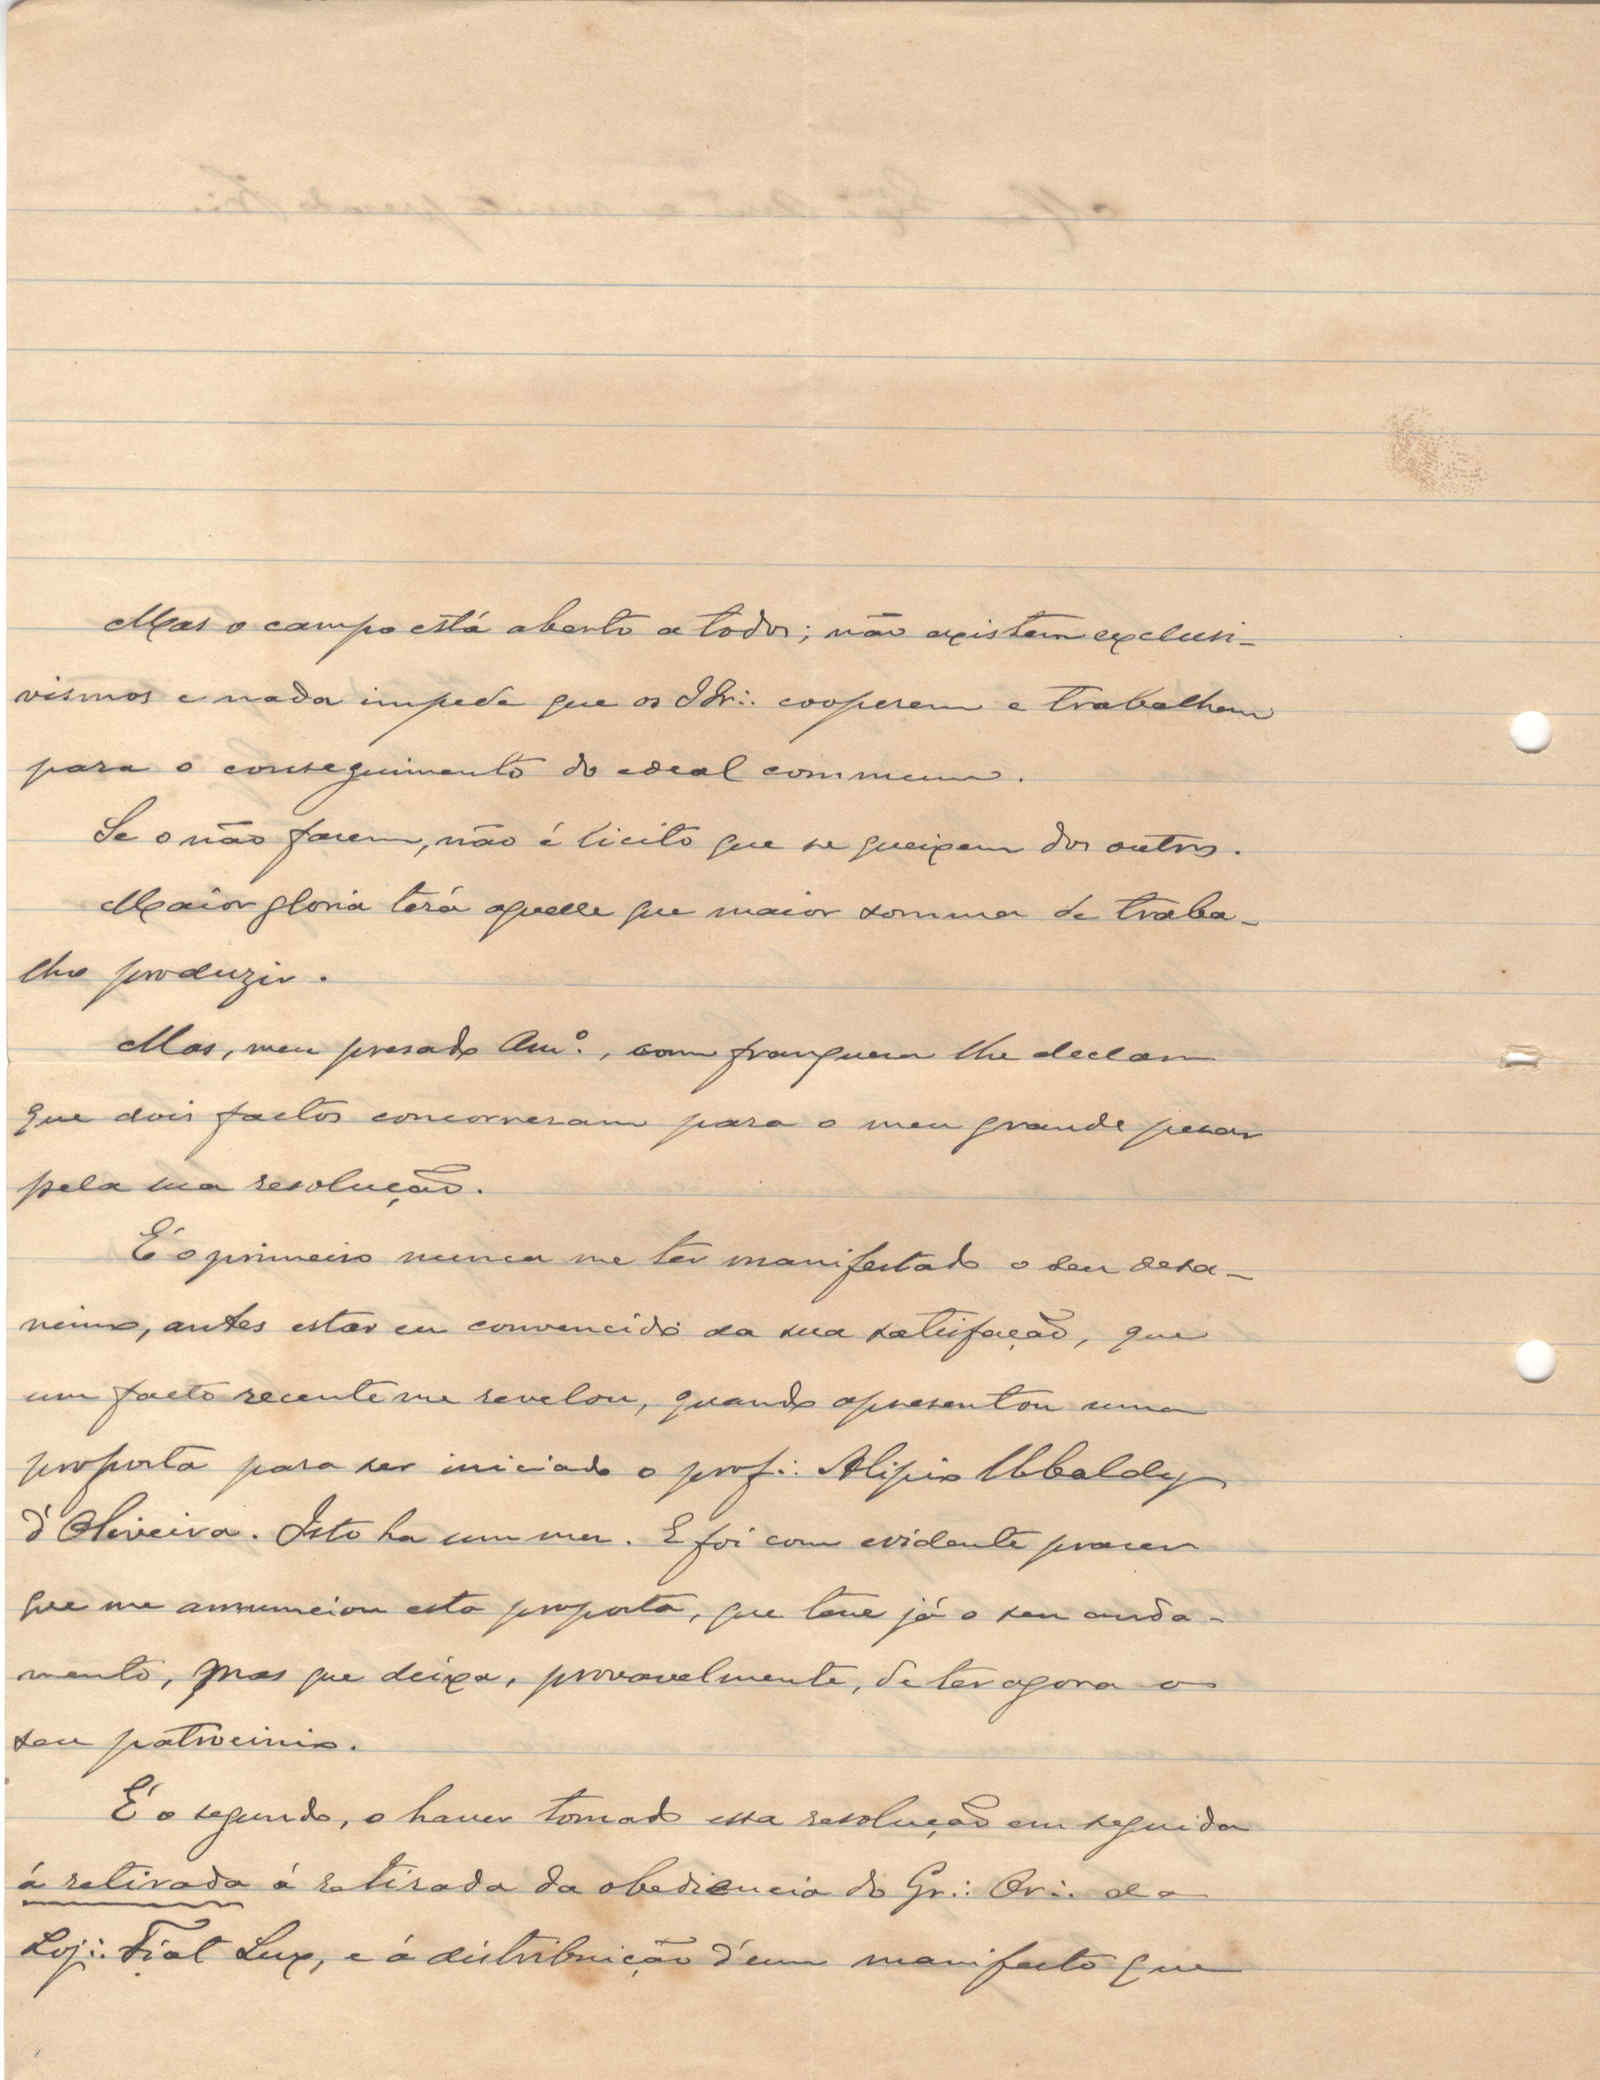 Mas o campo está aberto a todos; não existem exclusi-
vismos e nada impede que os IIr∴ cooperem e trabalhem
para o conseguimento do ideal commum.
Se o não fazem, não é licito que se queixem dos outros.
Maior gloria terá aquelle que maior somma de traba-
lho produzir.
Mas, meu presado Am.º, com franqueza lhe declaro
que dois factos concorreram para o meu grande pesar
pela sua resolução.
É o primeiro nunca me ter manifestado o seu desa-
nimo, antes estar eu convencido da sua satisfação, que
um facto recente me revelou, quando apresentou uma
proposta para ser iniciado o prof∴ Alipio Ubaldy
d'Oliveira. Isto ha um mez. E foi com evidente prazer
que me annunciou esta proposta, que teve já o seu anda-
mento, mas que deixa, provavelmente, de ter agora o
seu patrocinio.
É o segundo, o haver tomado essa resolução em seguida
á retirada á retirada da obediencia do Gr∴ Or∴ da
Loj∴ Fiat Lux, e á distribuição d'um manifesto que